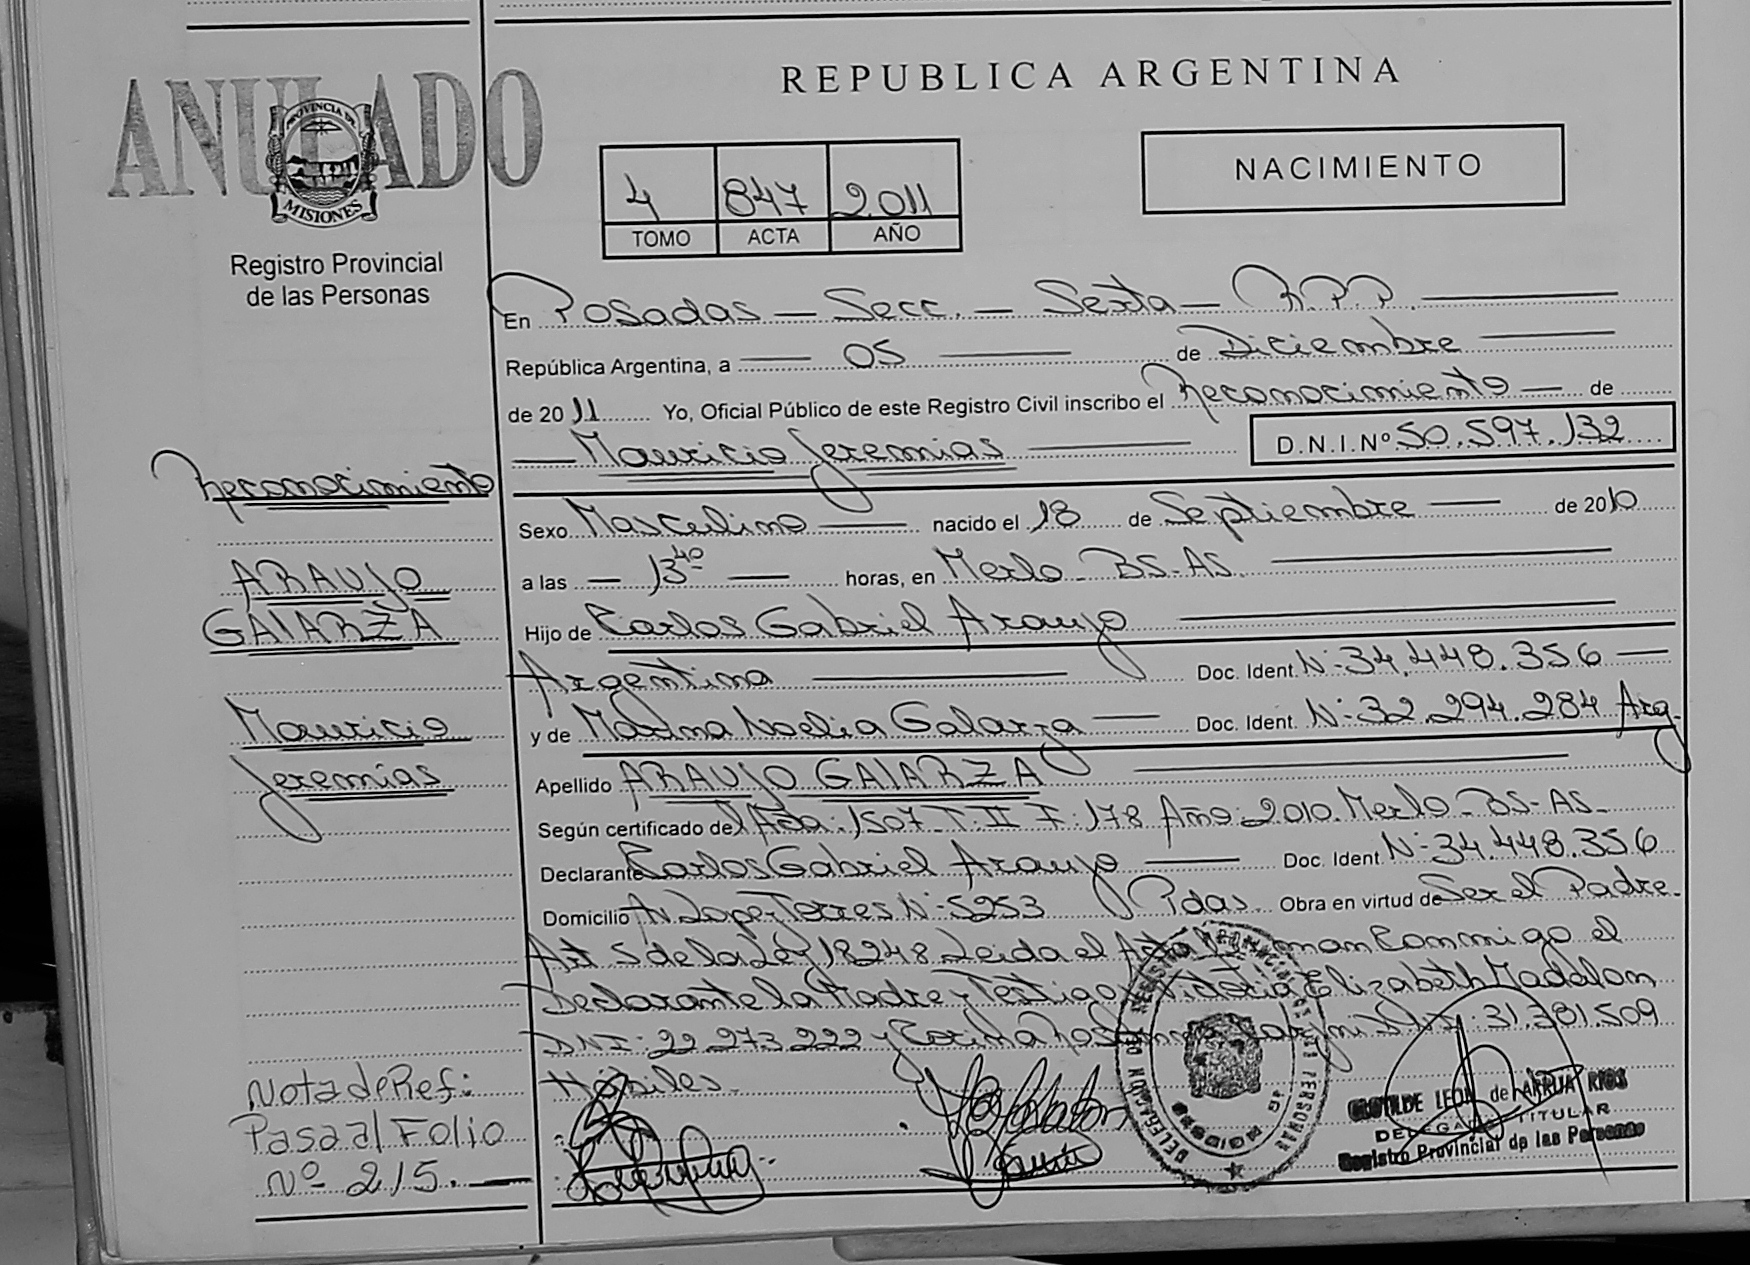 REPUBLICA ARGENTINA
ANULADO
PROVINCIA DE
MISIONES
Registro Provincial
de las Personas
4 847 2011
TOMO ACTA AÑO
NACIMIENTO
En Posadas — Secc. — Sexta — R.P.P.
República Argentina, a — 05 — de Diciembre
de 2011 Yo, Oficial Público de este Registro Civil inscribo el Reconocimiento — de
Mauricio Jeremias
D.N.I. Nº 50.597.132
Reconocimiento
ARAUJO
GALARZA
Mauricio
Jeremías
Sexo Masculino nacido el 18 de Septiembre de 2010
a las — 13 40 — horas, en Merlo - BS-AS.
Hijo de Carlos Gabriel Araujo
Argentina Doc. Ident. N: 34.448.356
y de Marina Noelia Galarza Doc. Ident. N: 32.294.284 Arg.
Apellido ARAUJO GALARZA
Según certificado del Acta: 1507 T: II F: 178 Año: 2010. Merlo - BS-AS.
Declarante Carlos Gabriel Araujo Doc. Ident. N: 34.448.356
Domicilio Av. Lopez Torres N: 5253 Pdas. Obra en virtud de Ser el Padre.
Art 5 de la Ley 18248 Leida el Acta Firman Conmigo el
Declarante la Madre y Testigos Victoria Elizabeth Madalon
DNI: 22.273.222 y 31.381.509
Hábiles.
Nota de Ref:
Pasa al Folio
Nº 215.
CLOTILDE LEON de ARRUA RIOS
DELEGADA TITULAR
Registro Provincial de las Personas